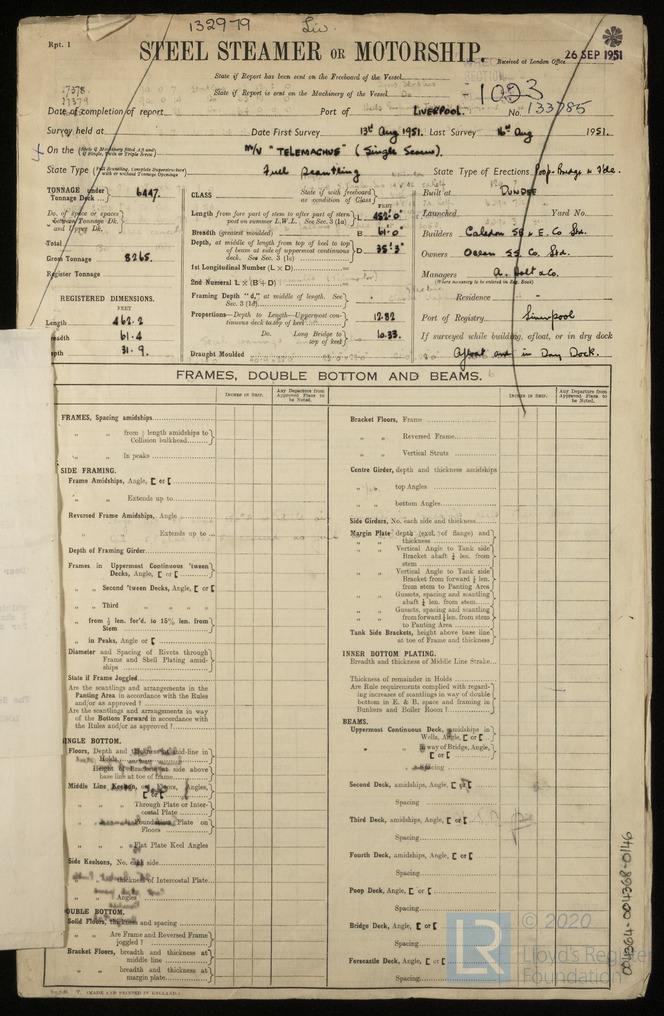 132979 Liv.
Rpt. 1
STEEL STEAMER OR MOTORSHIP.
Received at London Office
26 SEP 1951
State if Report has been sent on the Freeboard of the Vessel
State if Report is sent on the Machinery of the Vessel
17378
17379
1023
Date of completion of report
Port of LIVERPOOL.
No. 133785
Survey held at
Date First Survey 13th Aug 1951. Last Survey 16th Aug 1951.
On the
M/V "TELEMACHUS" (Single Screw).
State Type
Full Scantling
State Type of Erections Poop-Bridge & F'cle.
TONNAGE under Tonnage Deck 6447.
Do. of space or spaces between Tonnage Dk. and Upper Dk.
Total
Gross Tonnage 8265.
Register Tonnage
REGISTERED DIMENSIONS.
Length 462.2
eadth 61.4
epth 31.9.
CLASS
State if with freeboard as condition of Class
FEET
Length from fore part of stem to after part of stern post on summer L.W.L. See Sec. 3 (1a) L 452'.0"
Breadth (greatest moulded) B 61'.0"
Depth, at middle of length from top of keel to top of beam at side of uppermost continuous deck. See Sec. 3 (1c) D 35'.3"
1st Longitudinal Number (L × D)
2nd Numeral L × (B + D)
Framing Depth "d," at middle of length. See Sec. 3 (1d)
Proportions—Depth to Length—Uppermost continuous deck to top of keel 12.82
Do. Long Bridge to top of keel 10.33.
Draught Moulded
Built at DUNDEE
Launched Yard No.
Builders Caledon SB & E. Co Ltd.
Owners Ocean SS. Co. Ltd.
Managers A. Holt & Co.
(Where necessary to be entered in Reg. Book)
Residence -
Port of Registry Liverpool
If surveyed while building, afloat, or in dry dock
Afloat and in Dry Dock.
FRAMES, DOUBLE BOTTOM AND BEAMS.
INCHES IN SHIP.
Any Departure from Approved Plans to be Noted.
INCHES IN SHIP.
Any Departure from Approved Plans to be Noted.
FRAMES, Spacing amidships
" " from ⅕ length amidships to Collision bulkhead
" " In peaks
SIDE FRAMING.
Frame Amidships, Angle, [ or [
" " Extends up to
Reversed Frame Amidships, Angle
" " Extends up to
Depth of Framing Girder
Frames in Uppermost Continuous 'tween Decks, Angle, [ or [
" " Second 'tween Decks, Angle, [ or [
" " Third " " " "
" " from ⅕ len. for'd. to 15% len. from Stem
" " in Peaks, Angle or [
Diameter and Spacing of Rivets through Frame and Shell Plating amidships
State if Frame Joggled
Are the scantlings and arrangements in the Panting Area in accordance with the Rules and/or as approved?
Are the scantlings and arrangements in way of the Bottom Forward in accordance with the Rules and/or as approved?
INGLE BOTTOM.
Floors, Depth and mid-line in Holds
Height of Brackets at side above base line at toe of frame
Middle Line Keelson, on Floors, Angles, [ or [
" " Through Plate or Intercostal Plate
" " Foundation Plate on Floors
" " Flat Plate Keel Angles
Side Keelsons, No. each side
" " thickness of Intercostal Plate
" " Angles
OUBLE BOTTOM.
Solid Floors, thickness and spacing
" " Are Frame and Reversed Frame joggled?
Bracket Floors, breadth and thickness at middle line
" " breadth and thickness at margin plate
Bracket Floors, Frame
" " Reversed Frame
" " Vertical Struts
Centre Girder, depth and thickness amidships
" " top Angles
" " bottom Angles
Side Girders, No. each side and thickness
Margin Plate depth (excl. of flange) and thickness
" " Vertical Angle to Tank side Bracket abaft ¼ len. from stem
" " Vertical Angle to Tank side Bracket from forward ¼ len. from stem to Panting Area
" " Gussets, spacing and scantling abaft ¼ len. from stem
" " Gussets, spacing and scantling from forward ¼ len. from stem to Panting Area
Tank Side Brackets, height above base line at toe of Frame and thickness
INNER BOTTOM PLATING.
Breadth and thickness of Middle Line Strake
Thickness of remainder in Holds
Are Rule requirements complied with regarding increases of scantlings in way of double bottom in E. & B. space and framing in Bunkers and Boiler Room?
BEAMS.
Uppermost Continuous Deck, amidships in Wells, Angle, [ or [
" " in way of Bridge, Angle, [ or [
Spacing
Second Deck, amidships, Angle, [ or [
Spacing
Third Deck, amidships, Angle, [ or [
Spacing
Fourth Deck, amidships, Angle, [ or [
Spacing
Poop Deck, Angle, [ or [
Spacing
Bridge Deck, Angle, [ or [
Spacing
Forecastle Deck, Angle, [ or [
Spacing
(MADE AND PRINTED IN ENGLAND.)
004364-004368-0146
LR
© 2020
Lloyd's Register
Foundation